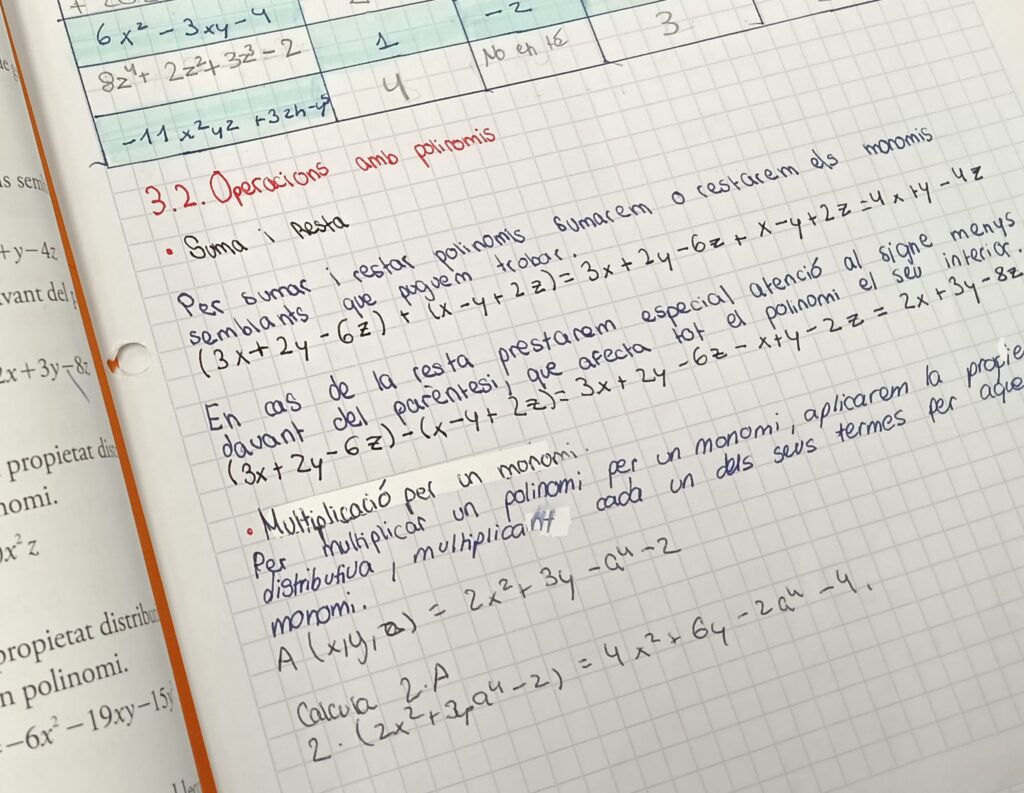 6x² - 3xy - 4
1
-2
8z⁴ + 2z² + 3z³ - 2
4
No en té
3
-11x²yz + 3zh - y⁵
3.2. Operacions amb polinomis
• Suma i resta
Per sumar i restar polinomis sumarem o restarem els monomis
semblants que puguem trobar.
(3x + 2y - 6z) + (x - y + 2z) = 3x + 2y - 6z + x - y + 2z = 4x + y - 4z
En cas de la resta prestarem especial atenció al signe menys
davant del parèntesi, que afecta tot el polinomi el seu interior.
(3x + 2y - 6z) - (x - y + 2z) = 3x + 2y - 6z - x + y - 2z = 2x + 3y - 8z
• Multiplicació per un monomi.
Per multiplicar un polinomi per un monomi, aplicarem la propie
distributiva, multiplicant cada un dels seus termes per aque
monomi.
A (x, y, a) = 2x² + 3y - a⁴ - 2
Calcula 2·A
2 · (2x² + 3y a⁴ - 2) = 4x² + 6y - 2a⁴ - 4.
+ y - 4z
vant del
2x + 3y - 8z
propietat dist
nomi.
x² z
propietat distribu
n polinomi.
= -6x² - 19xy - 15y